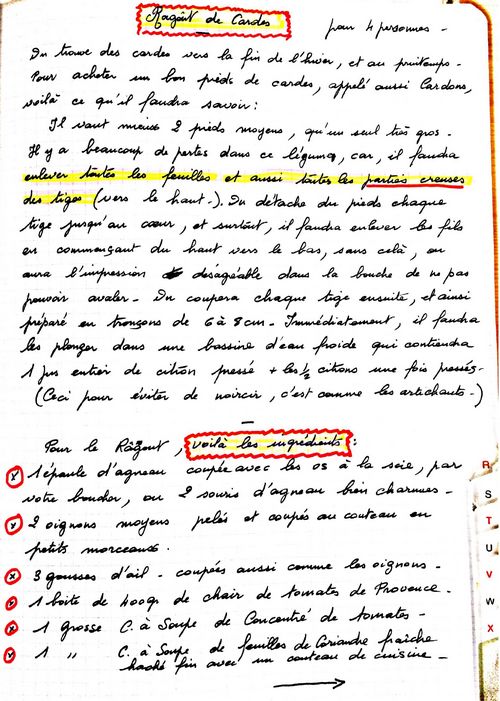 Ragoût de Cardes
pour 4 personnes -
On trouve des cardes vers la fin de l'hiver, et au printemps.
Pour acheter un bon pieds de cardes, appelé aussi Cardons,
voilà ce qu'il faudra savoir :
Il vaut mieux 2 pieds moyens, qu'un seul très gros.
Il y a beaucoup de pertes dans ce légume, car, il faudra
enlever toutes les feuilles et aussi toutes les parties creuses
des tiges (vers le haut-). On détache du pieds chaque
tige jusqu'au cœur, et surtout, il faudra enlever les fils
en commençant du haut vers le bas, sans celà, on
aura l'impression désagéable dans la bouche de ne pas
pouvoir avaler - On coupera chaque tige ensuite, et ainsi
préparé en tronçons de 6 à 8 cm - Immédiatement, il faudra
les plonger dans une bassine d'eau froide qui contiendra
1 jus entier de citron pressé + les ½ citrons une fois pressés-
(Ceci pour éviter de noircir, c'est comme les artichauts-)
Pour le Râgout, voilà les ingrédients :
x 1 épaule d'agneau coupée avec les os à la scie, par
votre boucher, ou 2 souris d'agneau bien charnues -
x 2 oignons moyens pelés et coupés au couteau en
petits morceaux.
x 3 gousses d'ail - coupées aussi comme les oignons-
x 1 boite de 400gr de chair de tomates de Provence -
x 1 grosse C. à Soupe de Concentré de tomates -
x 1 " C. à Soupe de feuilles de Coriandre fraîche
haché fin avec un couteau de cuisine -
R
S
T
U
V
W
X